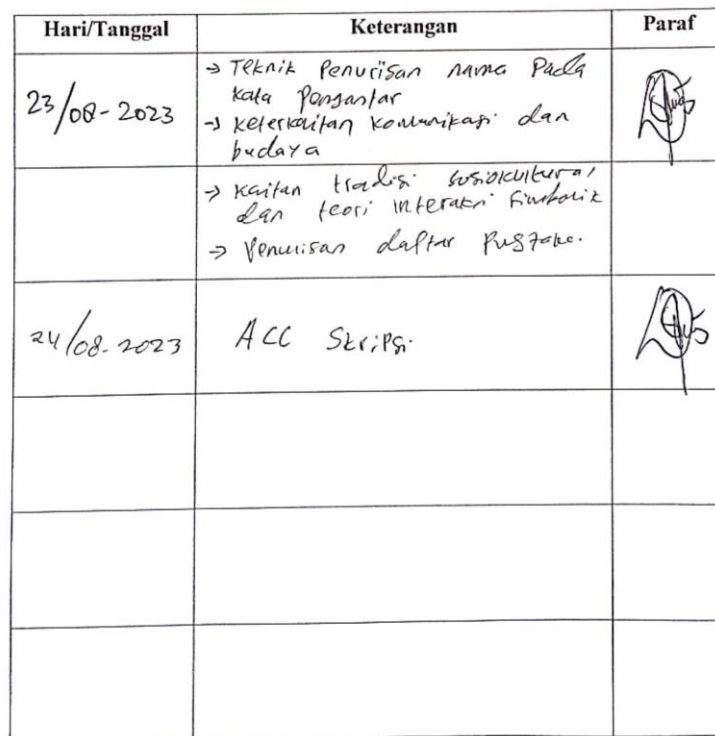 Hari/Tanggal Keterangan Paraf
23/08-2023
→ Teknik Penulisan nama Pada
kata Pengantar
→ keterkaitan komunikasi dan
budaya
→ kaitan tradisi sosiokultural
dan teori interaksi simbolik
→ Penulisan daftar Pustaka.
24/08-2023 ACC Skripsi